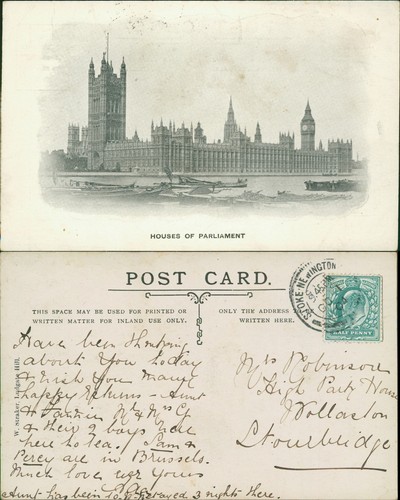 HOUSES OF PARLIAMENT
POST CARD.
THIS SPACE MAY BE USED FOR PRINTED OR
WRITTEN MATTER FOR INLAND USE ONLY.
ONLY THE ADDRESS
WRITTEN HERE.
STOKE-NEWINGTON
HALF PENNY
W. Straker, Ludgate Hill.
Have been thinking
about you today
& wish you many
happy Returns - Aunt
& their 2 boys were
here to tea. Sam &
Percy are in Brussels.
Much love
yours
Aunt has been & stayed 3 nights there.
Mrs Robinson
High Park House
Wollaston
Stourbridge